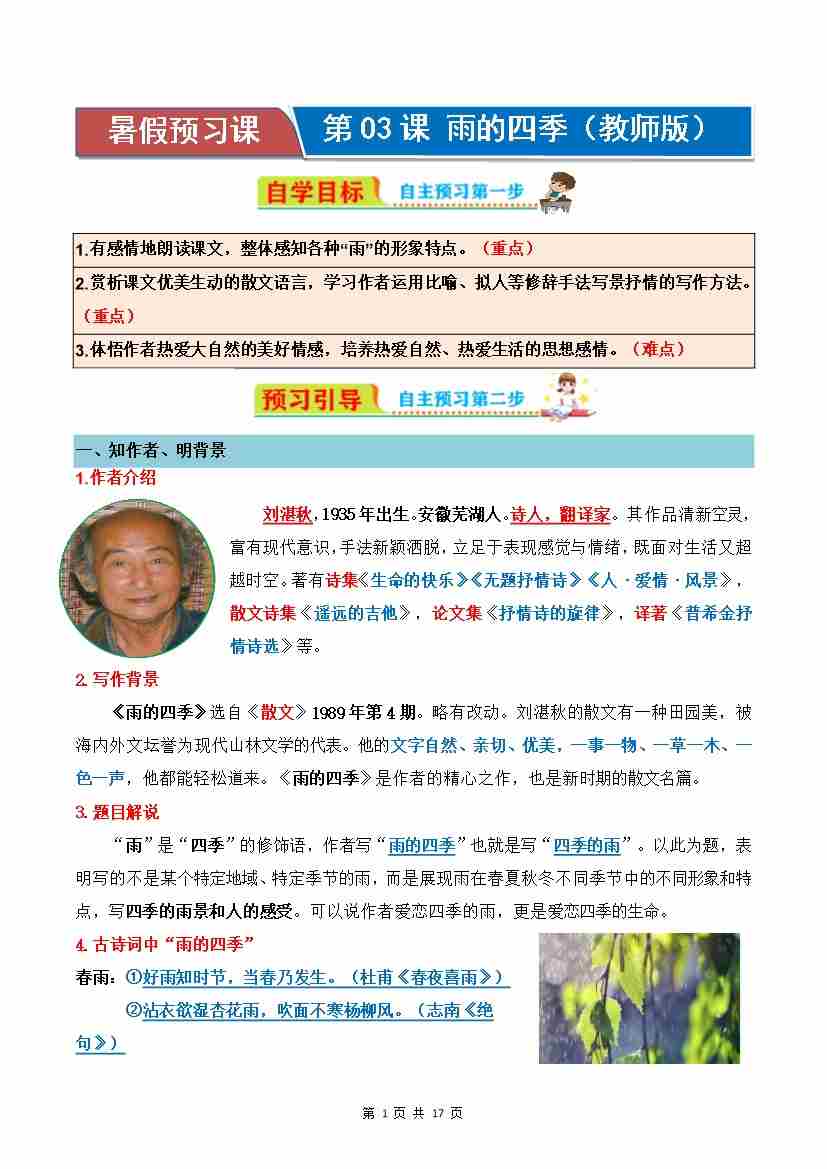 暑假预习课 第03课 雨的四季（教师版）
自学目标 自主预习第一步
1.有感情地朗读课文，整体感知各种“雨”的形象特点。（重点）
2.赏析课文优美生动的散文语言，学习作者运用比喻、拟人等修辞手法写景抒情的写作方法。
（重点）
3.体悟作者热爱大自然的美好情感，培养热爱自然、热爱生活的思想感情。（难点）
预习引导 自主预习第二步
一、知作者、明背景
1.作者介绍
刘湛秋，1935年出生。安徽芜湖人。诗人，翻译家。其作品清新空灵，
富有现代意识，手法新颖洒脱，立足于表现感觉与情绪，既面对生活又超
越时空。著有诗集《生命的快乐》《无题抒情诗》《人·爱情·风景》，
散文诗集《遥远的吉他》，论文集《抒情诗的旋律》，译著《普希金抒
情诗选》等。
2.写作背景
《雨的四季》选自《散文》1989年第4期。略有改动。刘湛秋的散文有一种田园美，被
海内外文坛誉为现代山林文学的代表。他的文字自然、亲切、优美，一事一物、一草一木、一
色一声，他都能轻松道来。《雨的四季》是作者的精心之作，也是新时期的散文名篇。
3.题目解说
“雨”是“四季”的修饰语，作者写“雨的四季”也就是写“四季的雨”。以此为题，表
明写的不是某个特定地域、特定季节的雨，而是展现雨在春夏秋冬不同季节中的不同形象和特
点，写四季的雨景和人的感受。可以说作者爱恋四季的雨，更是爱恋四季的生命。
4.古诗词中“雨的四季”
春雨：①好雨知时节，当春乃发生。（杜甫《春夜喜雨》）
②沾衣欲湿杏花雨，吹面不寒杨柳风。（志南《绝
句》）
第 1 页 共 17 页